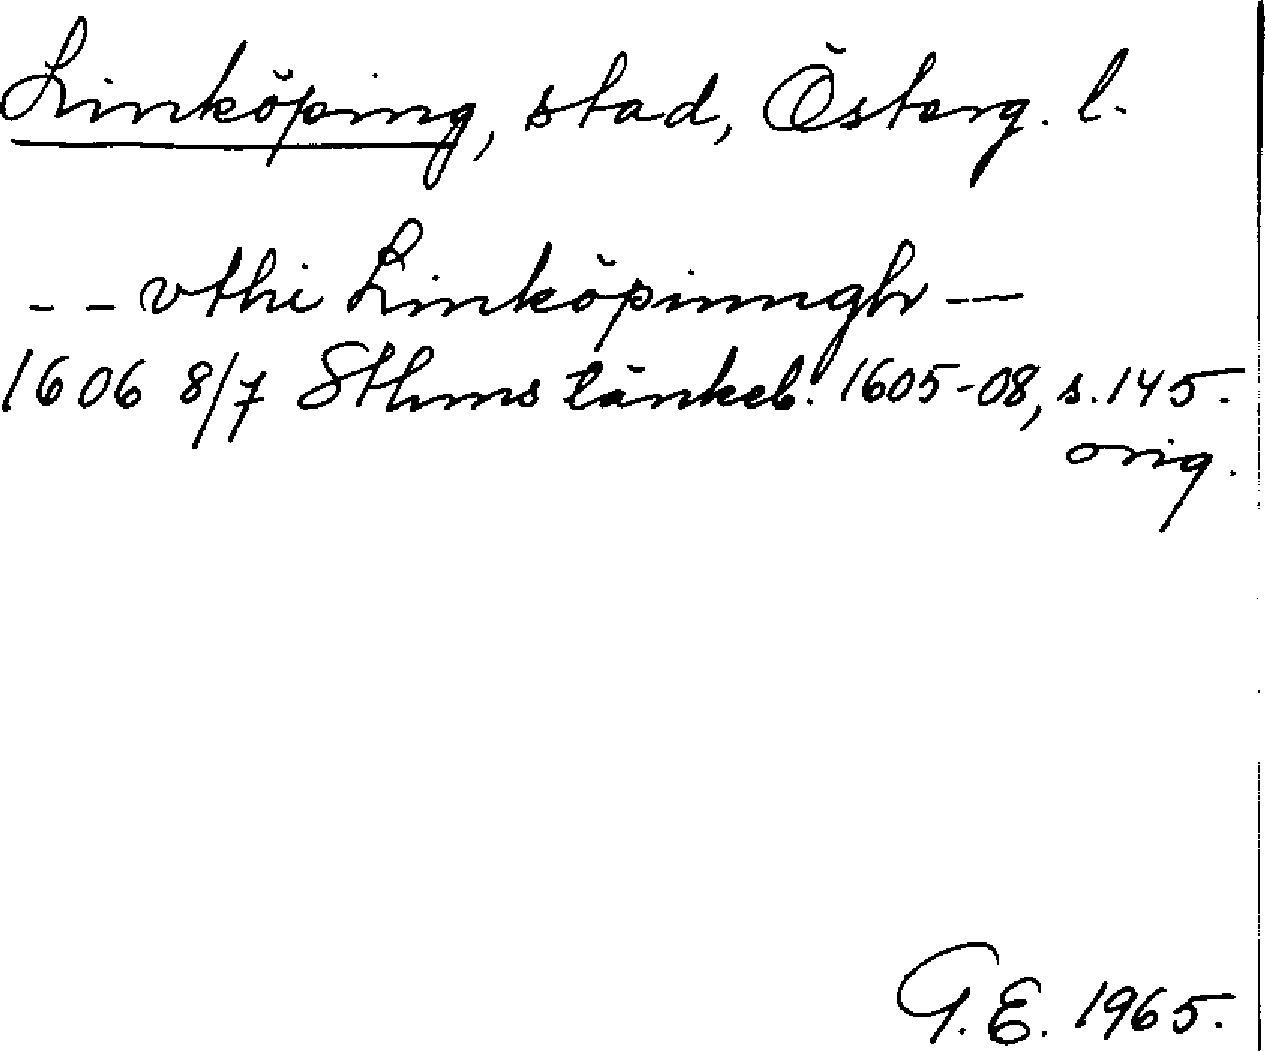 Linköping, stad, Österg. l.
- - vthi Linköpinngh --
1606 8/7 Sthms tänkeb. 1605-08, s. 145.
orig.
G. E. 1965.